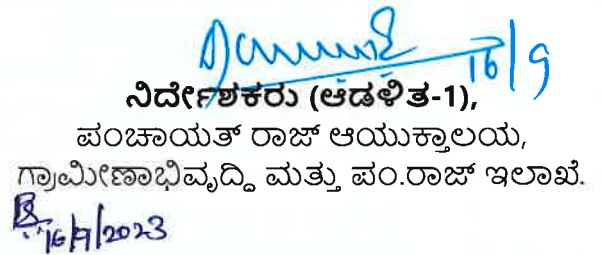 16/9
ನಿರ್ದೇಶಕರು (ಆಡಳಿತ-1),
ಪಂಚಾಯತ್ ರಾಜ್ ಆಯುಕ್ತಾಲಯ,
ಗ್ರಾಮೀಣಾಭಿವೃದ್ಧಿ ಮತ್ತು ಪಂ.ರಾಜ್ ಇಲಾಖೆ.
16/9/2023